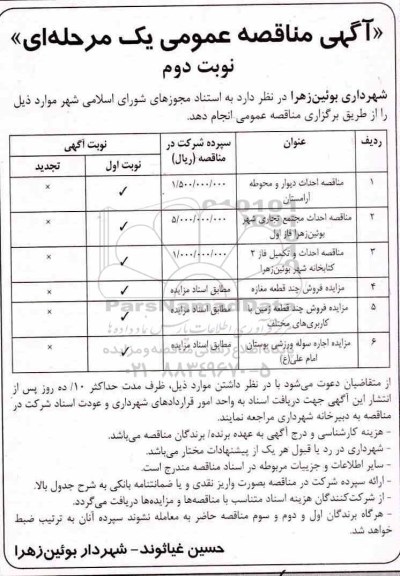 «آگهی مناقصه عمومی یک مرحله‌ای»
نوبت دوم
شهرداری بوئین‌زهرا در نظر دارد به استناد مجوزهای شورای اسلامی شهر موارد ذیل
را از طریق برگزاری مناقصه عمومی انجام دهد.
ردیف عنوان سپرده شرکت در مناقصه (ریال) نوبت آگهی
نوبت اول تجدید
۱ مناقصه احداث دیوار و محوطه آرامستان ۱/۵۰۰/۰۰۰/۰۰۰ ✓ ×
۲ مناقصه احداث مجتمع تجاری شهر بوئین‌زهرا فاز اول ۵/۰۰۰/۰۰۰/۰۰۰ ✓ ×
۳ مناقصه احداث و تکمیل فاز ۲ کتابخانه شهر بوئین‌زهرا ۱/۰۰۰/۰۰۰/۰۰۰ ✓ ×
۴ مزایده فروش چند قطعه مغازه مطابق اسناد مزایده ✓ ×
۵ مزایده فروش چند قطعه زمین با کاربری‌های مختلف مطابق اسناد مزایده ✓ ×
۶ مزایده اجاره سوله ورزشی بوستان امام علی(ع) مطابق اسناد مزایده ✓ ×
ParsNamadData
۰۲۱-۸۸۳۴۹۶۷۰-۵
از متقاضیان دعوت می‌شود با در نظر داشتن موارد ذیل، ظرف مدت حداکثر ۱۰/ ده روز پس از
انتشار این آگهی جهت دریافت اسناد به واحد امور قراردادهای شهرداری و عودت اسناد شرکت در
مناقصه به دبیرخانه شهرداری مراجعه نمایند.
- هزینه کارشناسی و درج آگهی به عهده برنده/ برندگان مناقصه می‌باشد.
- شهرداری در رد یا قبول هر یک از پیشنهادات مختار می‌باشد.
- سایر اطلاعات و جزییات مربوطه در اسناد مناقصه مندرج است.
- ارائه سپرده شرکت در مناقصه بصورت واریز نقدی و یا ضمانتنامه بانکی به شرح جدول بالا.
- از شرکت‌کنندگان هزینه اسناد متناسب با مناقصه‌ها و مزایده‌ها دریافت می‌گردد.
- هرگاه برندگان اول و دوم و سوم مناقصه حاضر به معامله نشوند سپرده آنان به ترتیب ضبط
خواهد شد.
حسین غیاثوند- شهردار بوئین‌زهرا